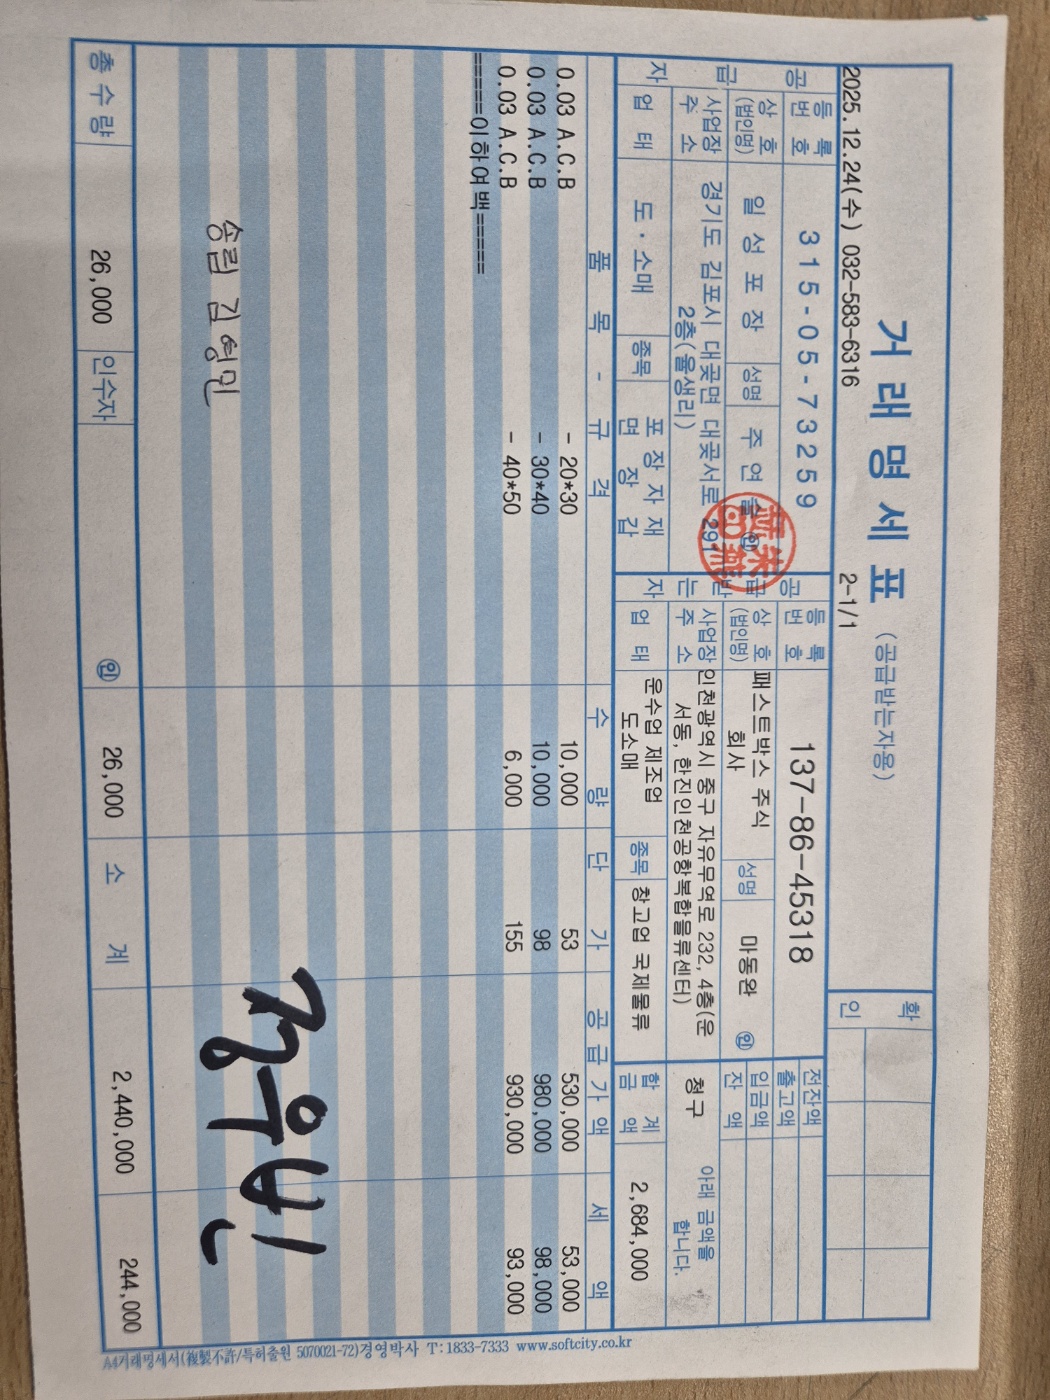 거래명세표 (공급받는자용)
2025.12.24(수) 032-583-6316 2-1/1
확인
공급자
등록번호 315-05-73259
상호(법인명) 일성포장 성명 주연술 ㊞
사업장주소 경기도 김포시 대곶면 대곶서로 291
2층(율생리)
업태 도·소매 종목 포장자재
면장갑
공급받는자
등록번호 137-86-45318
상호(법인명) 패스트박스 주식
회사 성명 마동완 ㊞
사업장주소 인천광역시 중구 자유무역로 232, 4층(운
서동, 한진인천공항복합물류센터)
업태 운수업 제조업
도소매 종목 창고업 국제물류
전잔액
출고액
입금액
잔액
청구 아래 금액을
합니다.
합계금액 2,684,000
품목 - 규격 수량 단가 공급가액 세액
0.03 A.C.B - 20*30 10,000 53 530,000 53,000
0.03 A.C.B - 30*40 10,000 98 980,000 98,000
0.03 A.C.B - 40*50 6,000 155 930,000 93,000
=====이하여백=====
송림 김영민
총수량 26,000 인수자 ㊞ 26,000 소계 2,440,000 244,000
A4거래명세서(複製不許/특허출원 5070021-72)경영박사 T:1833-7333 www.softcity.co.kr